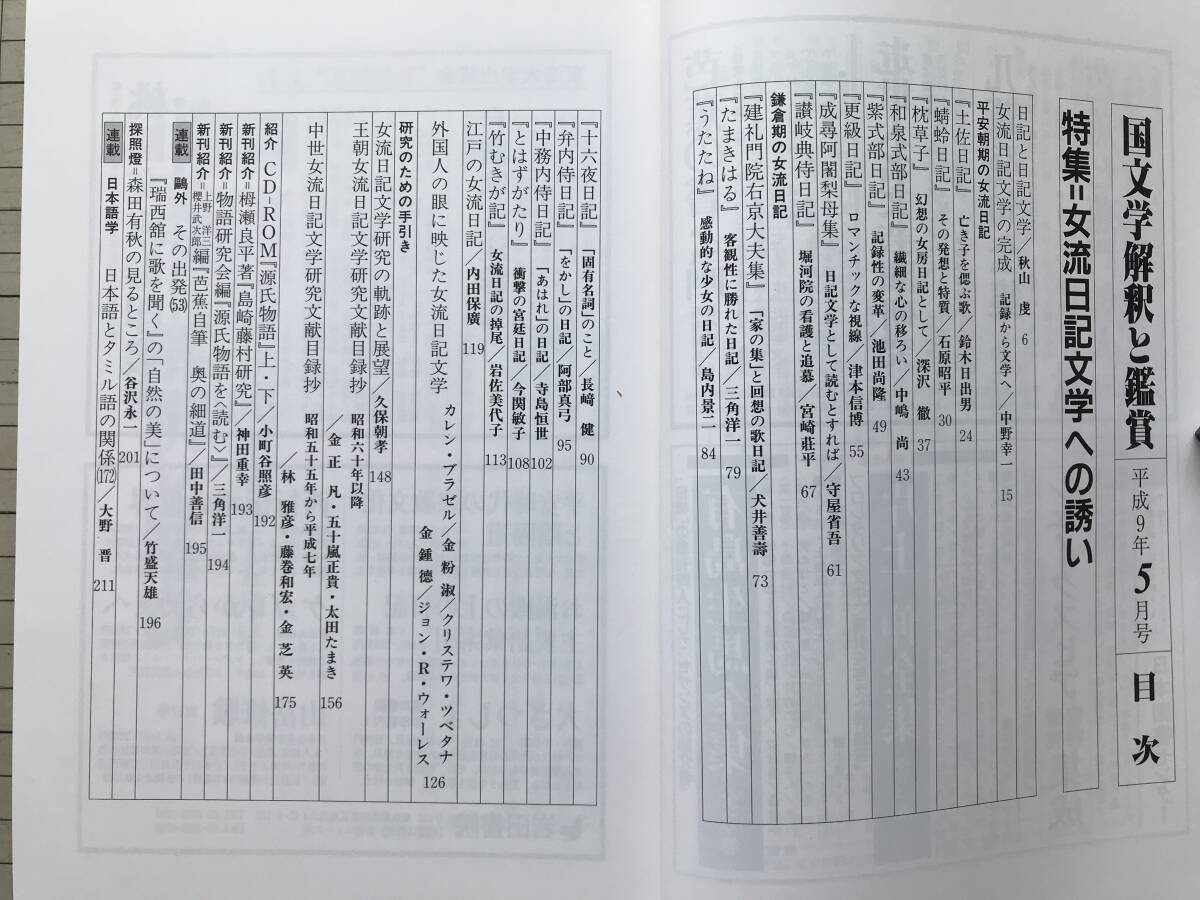 国文学解釈と鑑賞 平成9年5月号 目次
特集=女流日記文学への誘い
日記と日記文学/秋山 虔 6
女流日記文学の完成 記録から文学へ/中野幸一 15
平安朝期の女流日記
『土佐日記』 亡き子を偲ぶ歌/鈴木日出男 24
『蜻蛉日記』 その発想と特質/石原昭平 30
『枕草子』 幻想の女房日記として/深沢 徹 37
『和泉式部日記』 繊細な心の移ろい/中嶋 尚 43
『紫式部日記』 記録性の変革/池田尚隆 49
『更級日記』 ロマンチックな視線/津本信博 55
『成尋阿闍梨母集』 日記文学として読むとすれば/守屋省吾 61
『讃岐典侍日記』 堀河院の看護と追慕/宮崎莊平 67
鎌倉期の女流日記
『建礼門院右京大夫集』 「家の集」と回想の歌日記/犬井善壽 73
『たまきはる』 客観性に勝れた日記/三角洋一 79
『うたたね』 感動的な少女の日記/島内景二 84
『十六夜日記』 「固有名詞」のこと/長崎 健 90
『弁内侍日記』 「をかし」の日記/阿部真弓 95
『中務内侍日記』 「あはれ」の日記/寺島恒世 102
『とはずがたり』 衝撃の宮廷日記/今関敏子 108
『竹むきが記』 女流日記の掉尾/岩佐美代子 113
江戸の女流日記/内田保廣 119
外国人の眼に映じた女流日記文学
カレン・ブラゼル/金 粉淑/クリステワ・ツベタナ
金 鍾德/ジョン・R・ウォーレス 126
研究のための手引き
女流日記文学研究の軌跡と展望/久保朝孝 148
王朝女流日記文学研究文献目録抄 昭和六十年以降
/金 正凡・五十嵐正貴・太田たまき 156
中世女流日記文学研究文献目録抄 昭和五十五年から平成七年
/林 雅彦・藤巻和宏・金 芝英 175
紹介 CD-ROM『源氏物語』上・下/小町谷照彦 192
新刊紹介=栂瀬良平著『島崎藤村研究』/神田重幸 193
新刊紹介=物語研究会編『源氏物語を〈読む〉』/三角洋一 194
新刊紹介=上野洋三編 櫻井武次郎編『芭蕉自筆 奥の細道』/田中善信 195
連載 鷗外 その出発(53)
『瑞西舘に歌を聞く』の「自然の美」について/竹盛天雄 196
探照燈=森田有秋の見るところ/谷沢永一 201
連載 日本語学 日本語とタミル語の関係(172)/大野 晋 211